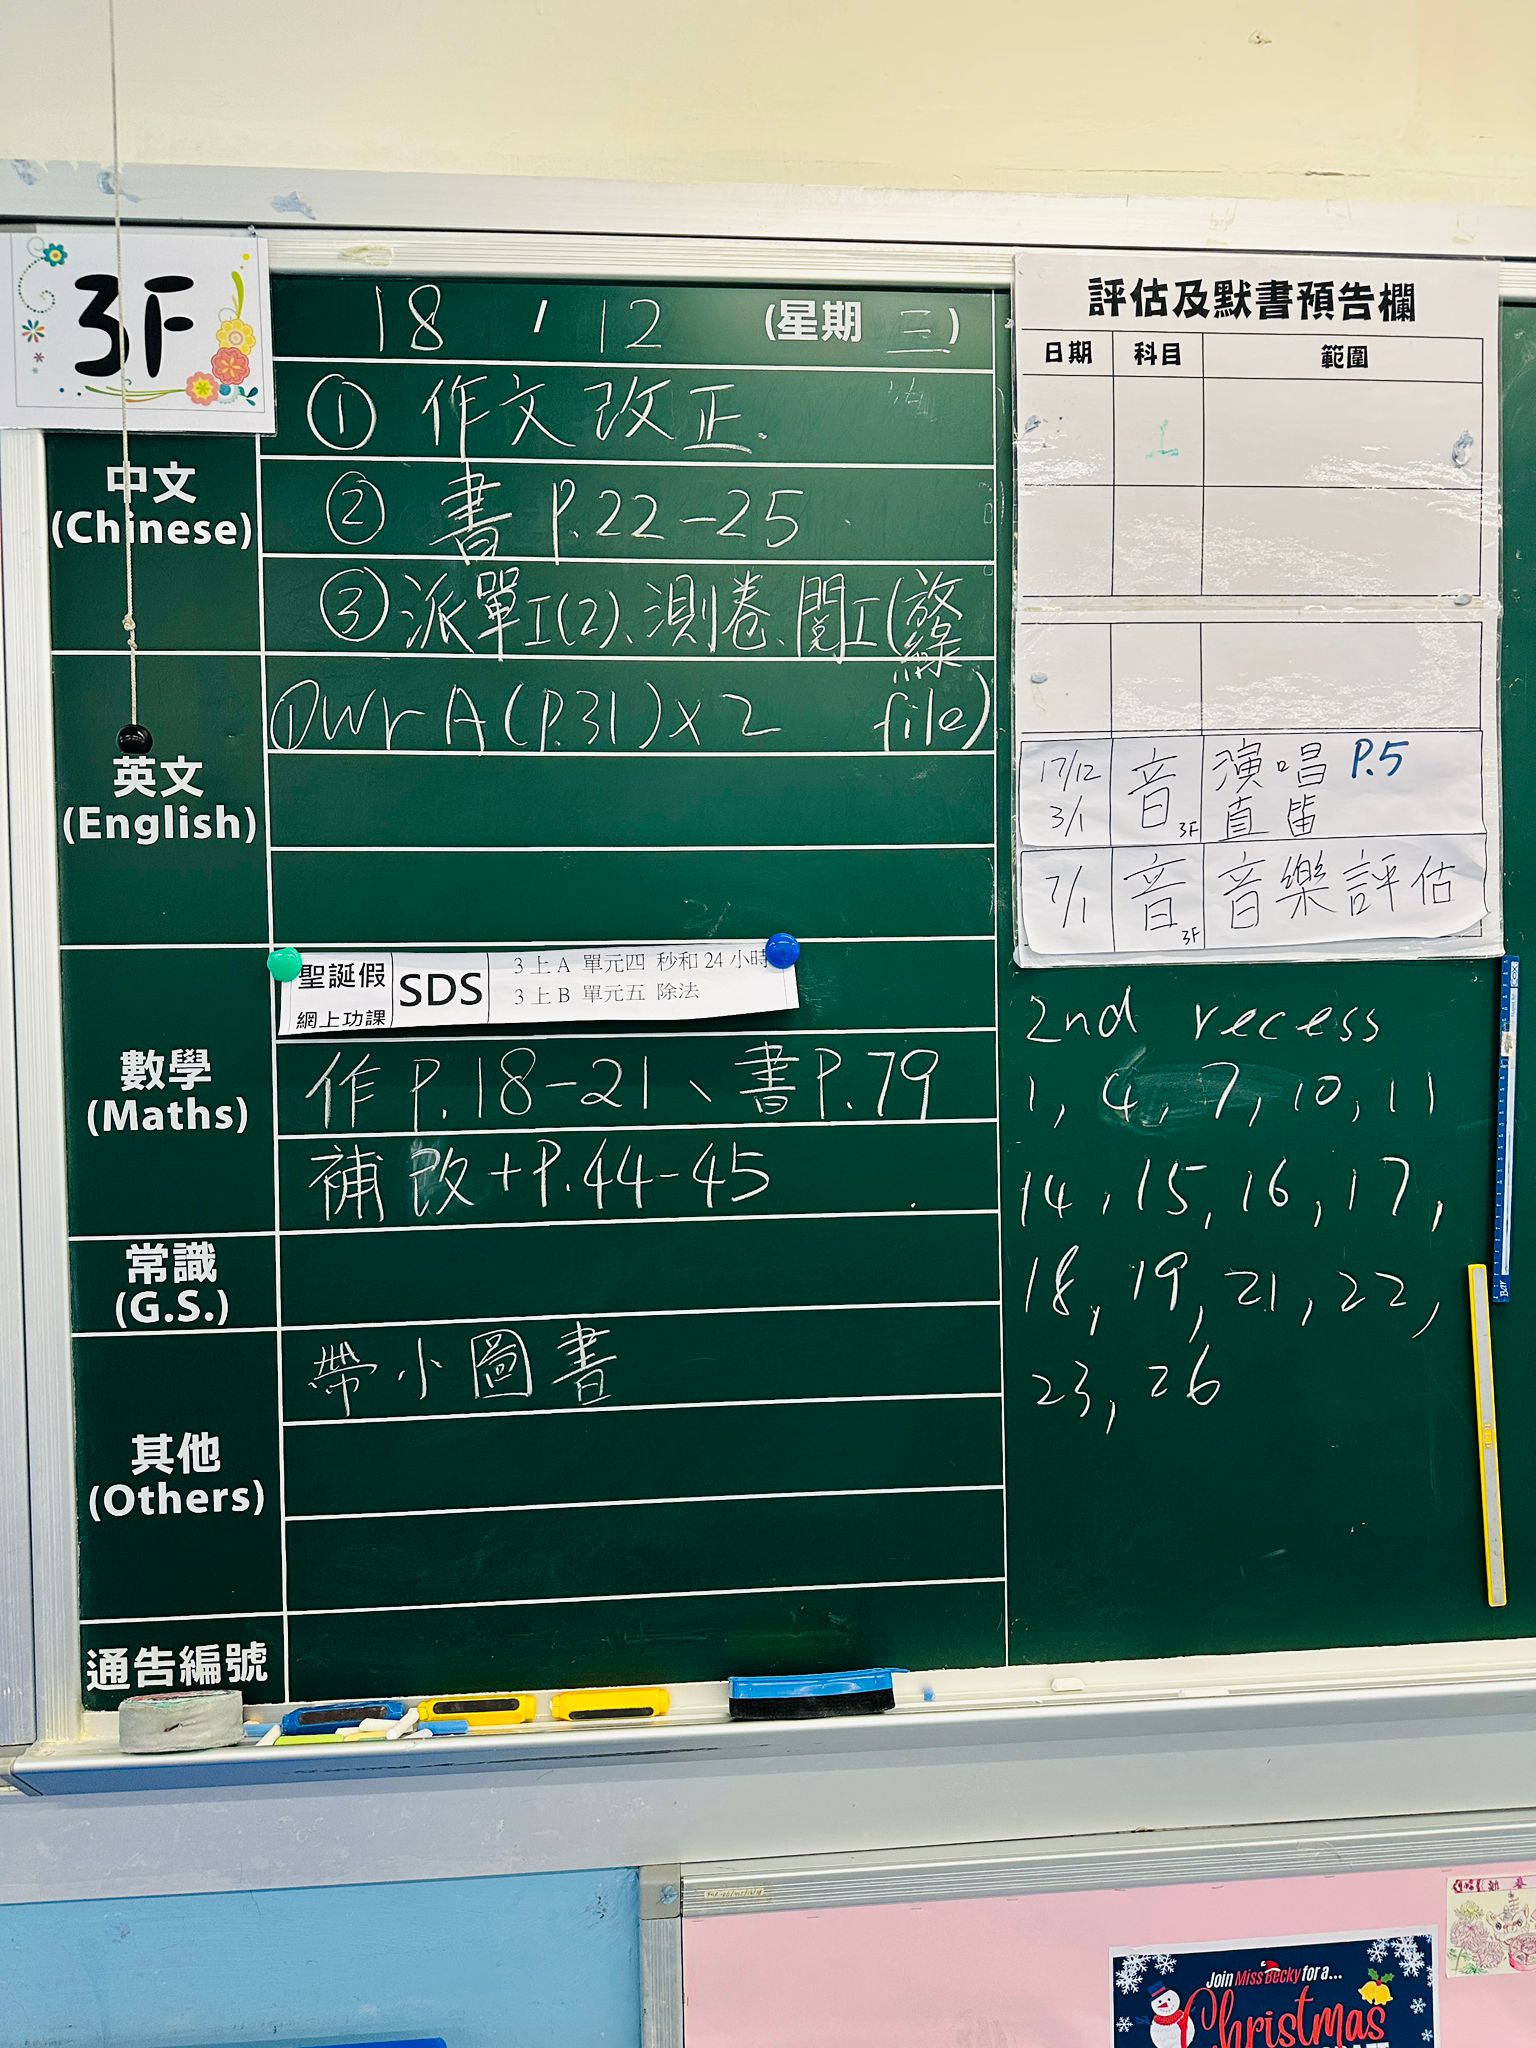 3F
18 / 12 (星期 三)
中文
(Chinese)
① 作文改正.
② 書 P.22-25
③ 派單工(2)、測卷、閱工(放綠file)
英文
(English)
① Wr A (P.31) x 2
數學
(Maths)
聖誕假
網上功課
SDS
3 上 A 單元四 秒和 24 小時
3 上 B 單元五 除法
作 P.18-21、書 P.79
補 改 + P.44-45
常識
(G.S.)
其他
(Others)
帶小圖書
通告編號
評估及默書預告欄
日期 科目 範圍
17/12 音 演唱 P.5
3/1 3F 直笛
7/1 音 3F 音樂評估
2nd recess
1, 4, 7, 10, 11
14, 15, 16, 17,
18, 19, 21, 22,
23, 26
Join Miss Becky for a...
Christmas